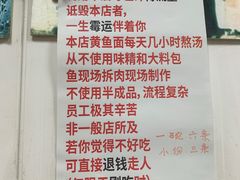 诋毁本店者,
一生霉运伴着你
本店黄鱼面每天几小时熬汤
从不使用味精和大料包
鱼现场拆肉现场制作
不使用半成品,流程复杂
员工极其辛苦
非一般店所及
若你觉得不好吃
可直接退钱走人
一碗六条
小碗三条